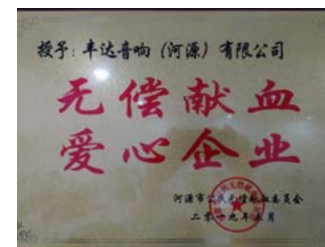 授予：丰达音响（河源）有限公司
无偿献血
爱心企业
河源市公民无偿献血委员会
二零一九年 月